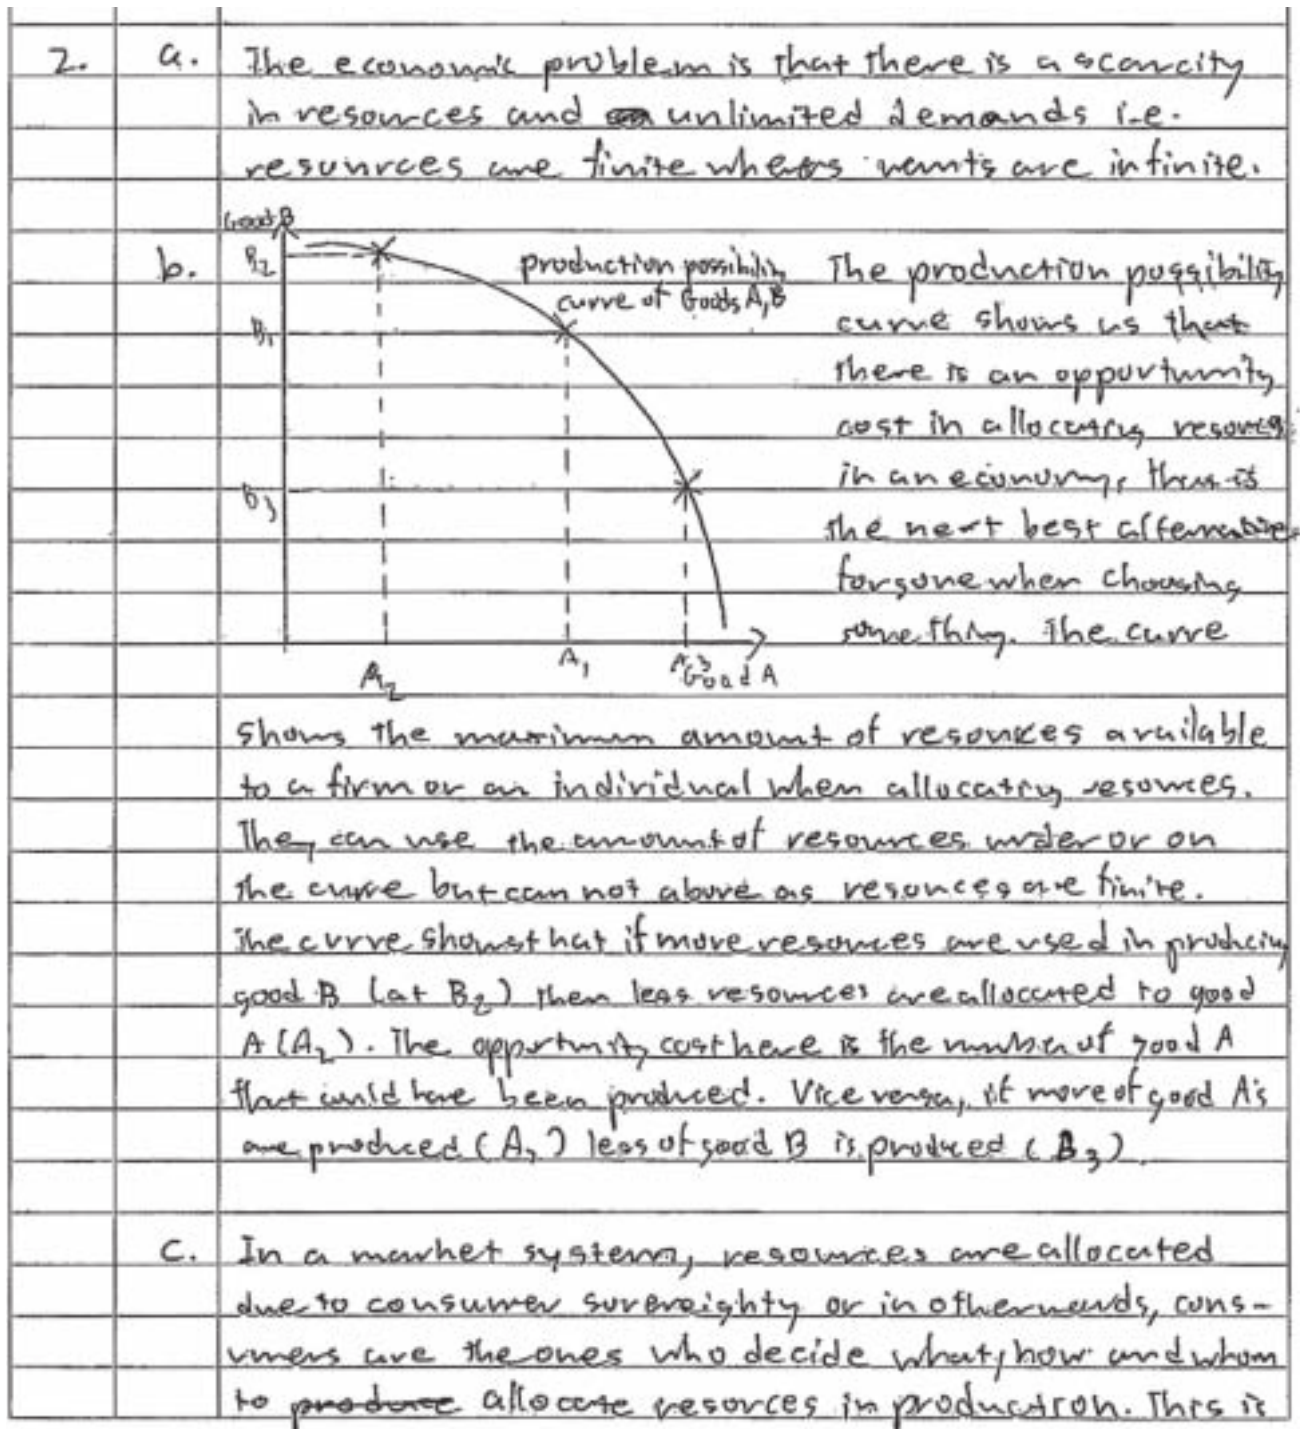 2. a. The economic problem is that there is a scarcity
in resources and unlimited demands i.e.
resources are finite wheras wants are infinite.
Good B
b. B2 production possibility The production possibility
curve of Goods A,B
B1 curve shows us that
there is an opportunity
cost in allocating resources
B3 in an economy, that is
the next best alternative
forgone when choosing
something. The curve
A2 A1 A3 Good A
shows the maximum amount of resources available
to a firm or an individual when allocating resources.
They can use the amount of resources under or on
the curve but can not above as resources are finite.
The curve shows that if more resources are used in producing
good B (at B2) then less resources are allocated to good
A (A2). The opportunity cost here is the number of good A
that could have been produced. Vice versa, if more of good A's
are produced (A3) less of good B is produced (B3).
c. In a market system, resources are allocated
due to consumer sovereighty or in other words, cons-
umers are the ones who decide what, how and whom
to produce allocate resorces in production. This is